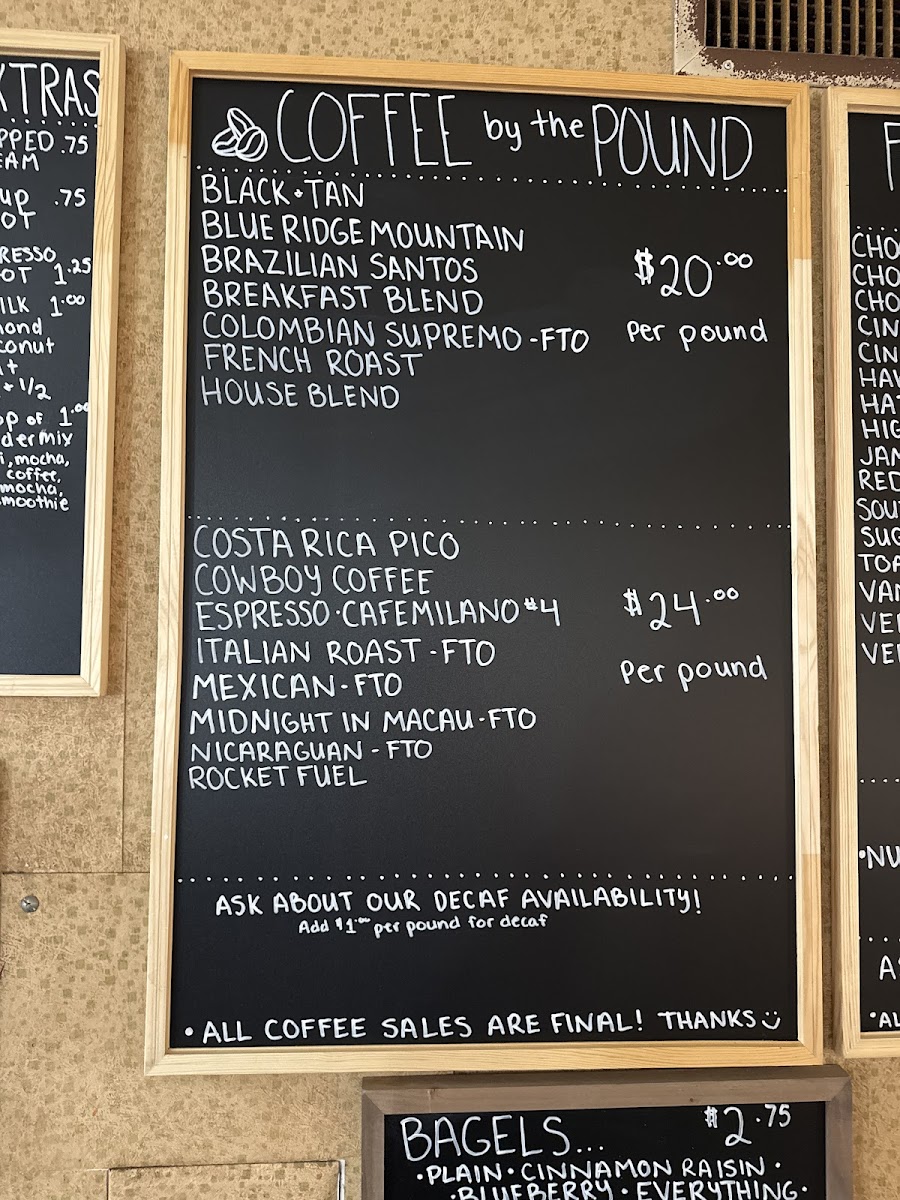 XTRAS
.75
EAM
.75
OT
OT 1.25
1.00
+ 1/2
OF 1.00
mix
, mocha,
coffee,
mocha,
smoothie
COFFEE by the POUND
BLACK + TAN
BLUE RIDGE MOUNTAIN
BRAZILIAN SANTOS
BREAKFAST BLEND
COLOMBIAN SUPREMO - FTO
FRENCH ROAST
HOUSE BLEND
$20.00
Per pound
COSTA RICA PICO
COWBOY COFFEE
ESPRESSO · CAFEMILANO #4
ITALIAN ROAST - FTO
MEXICAN - FTO
MIDNIGHT IN MACAU - FTO
NICARAGUAN - FTO
ROCKET FUEL
$24.00
Per pound
ASK ABOUT OUR DECAF AVAILABILITY!
Add $1.00 per pound for decaf
• ALL COFFEE SALES ARE FINAL! THANKS
F
CHO
CHO
CHO
CIN
CIN
HAW
HAZ
HIG
JAM
RED
SOU
SUG
TOA
VAN
VE
VE
• NU
A
• AL
BAGELS... $2.75
• PLAIN • CINNAMON RAISIN •
• BLUEBERRY • EVERYTHING •